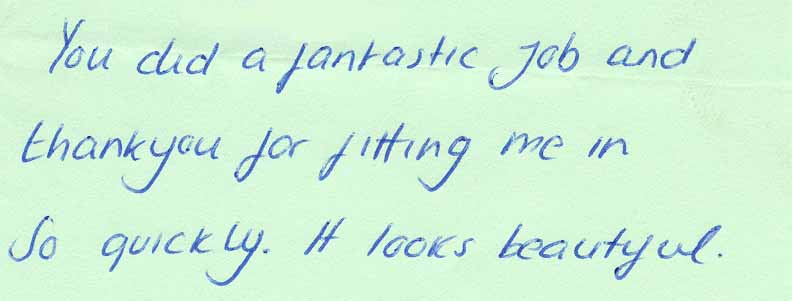 You did a fantastic job and
thankyou for fitting me in
So quickly. It looks beautyful.